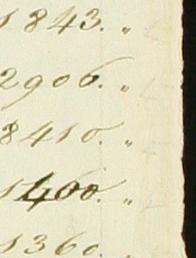 1843. "
2906. "
8410. "
1400. "
1360. "